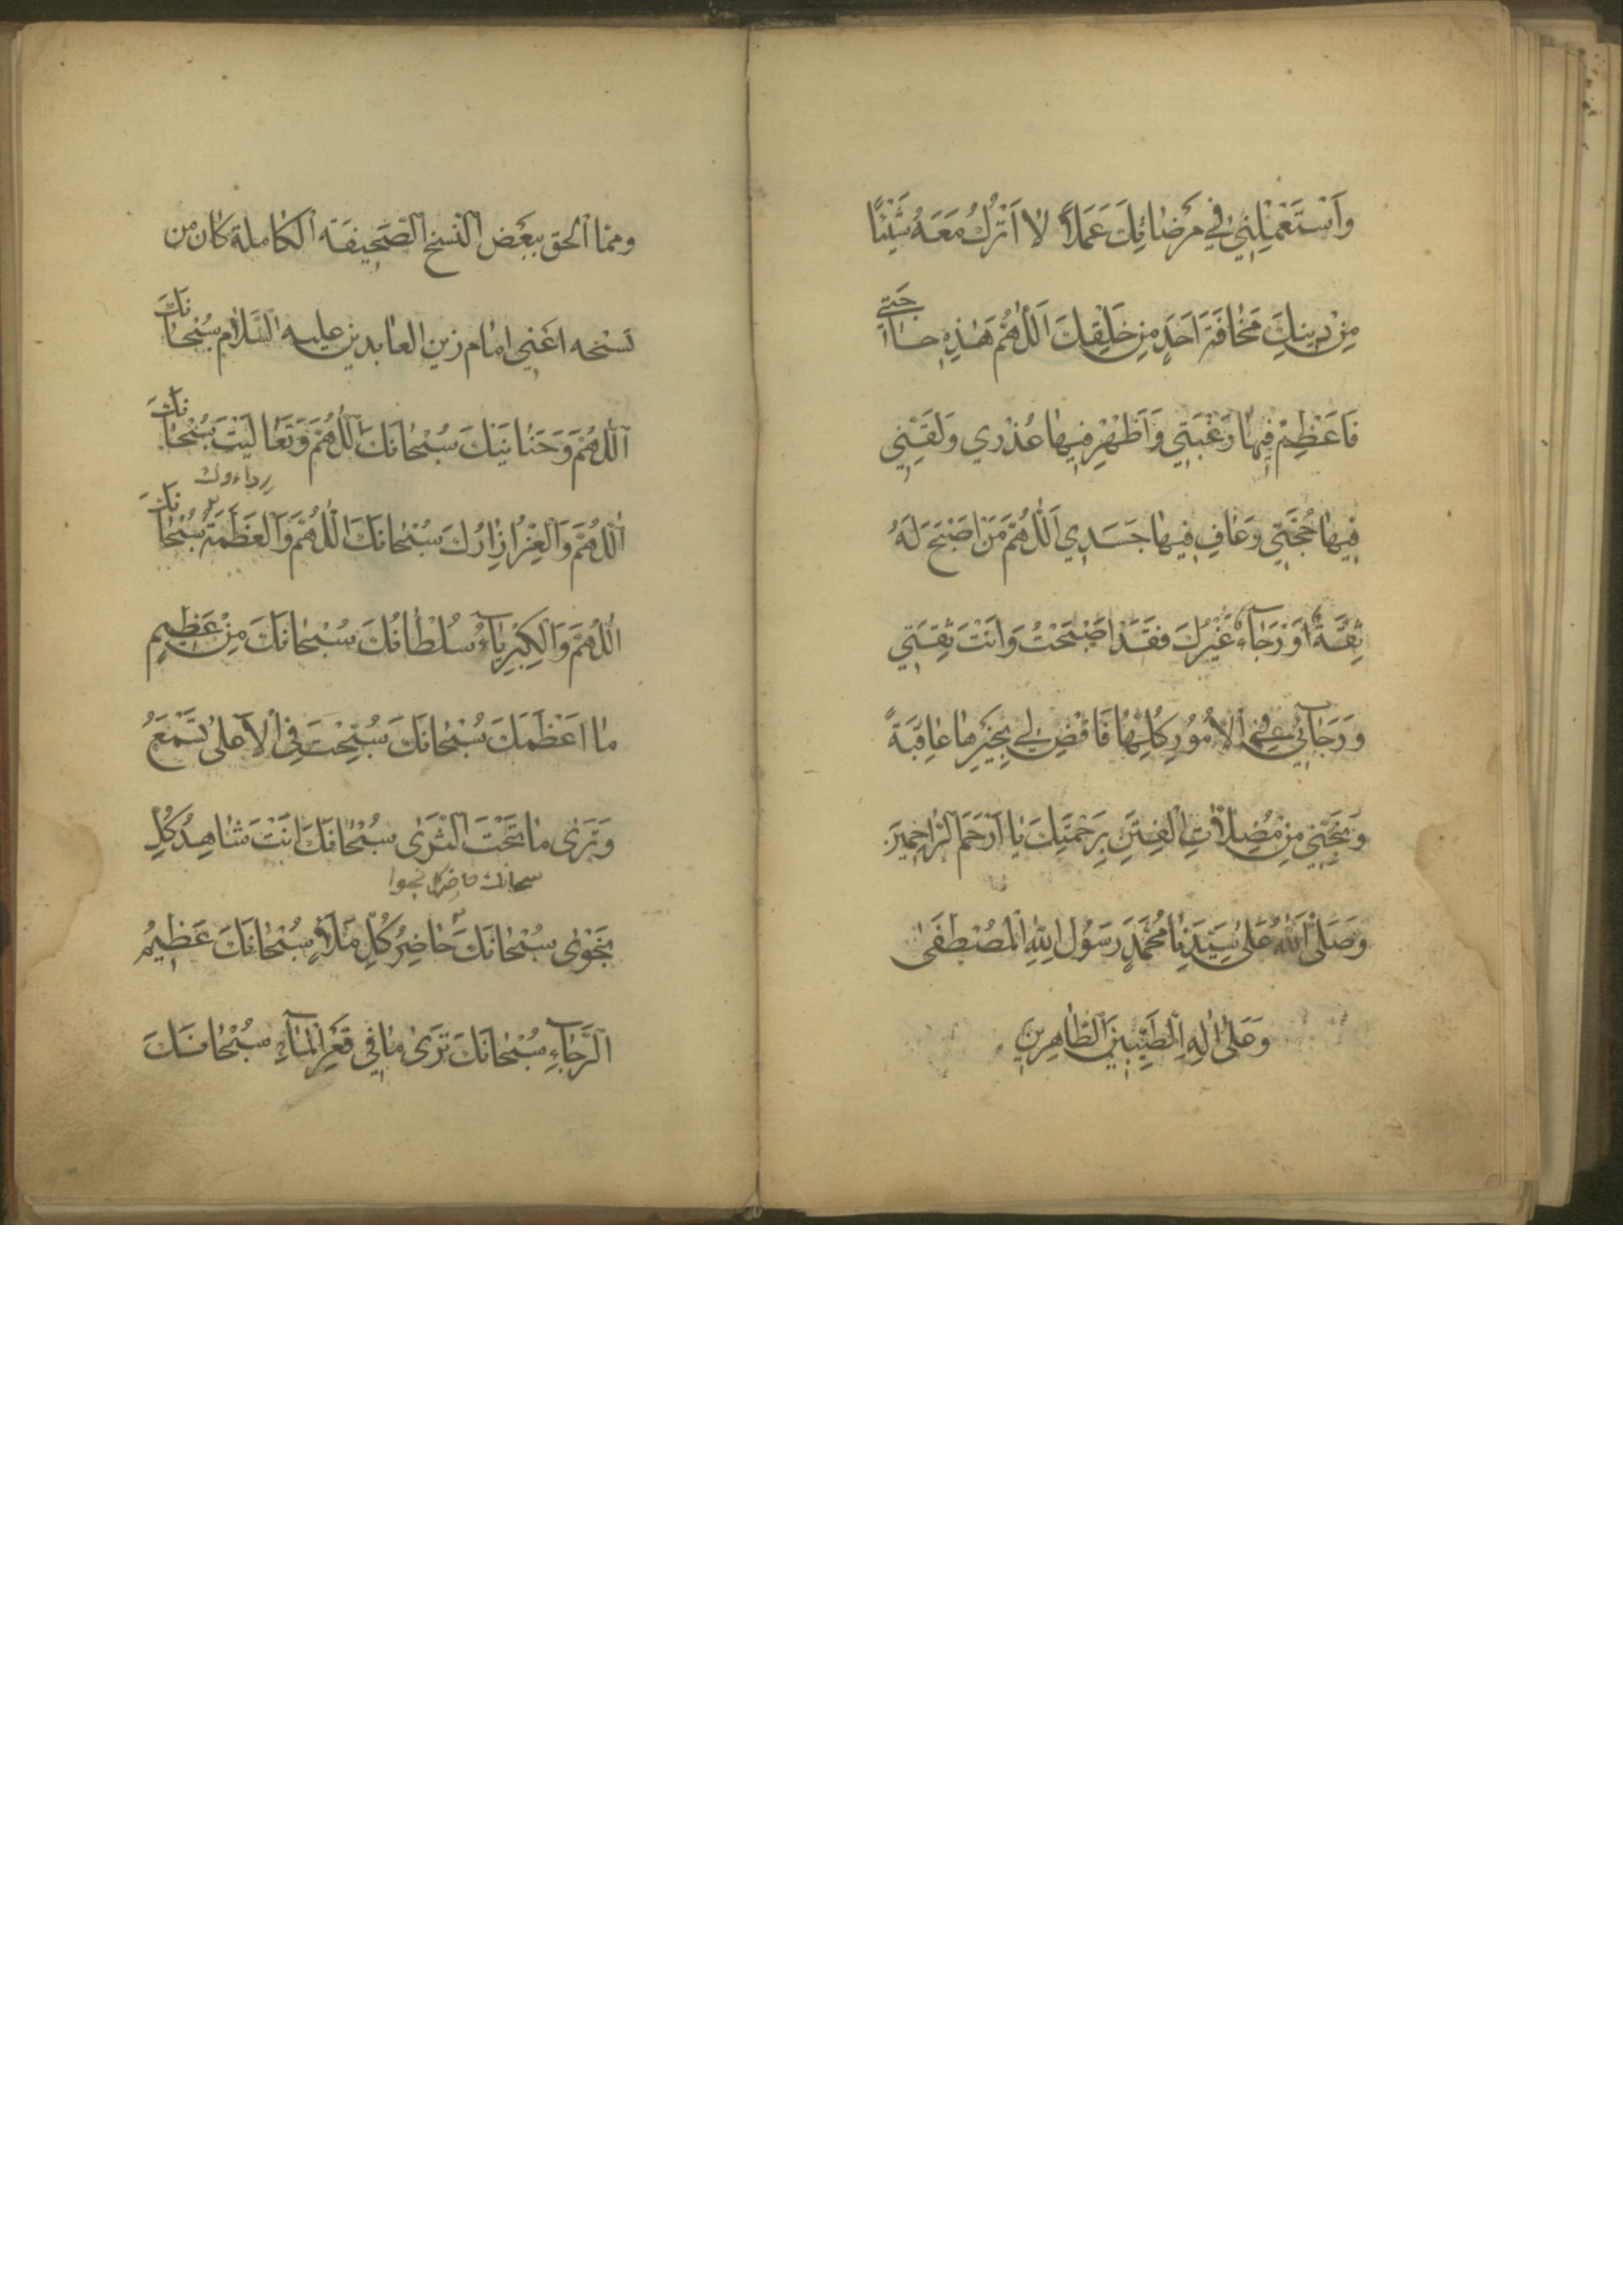 وَاسْتَعْمِلْنِي فِي مَرْضَاتِكَ عَمَلًا لَا اَتْرُكُ مَعَهُ شَيْئًا
مِنْ دِينِكَ مَخَافَةَ اَحَدٍ مِنْ خَلْقِكَ اَللّٰهُمَّ هَذِهِ حَاجَتِي
فَاَعْظِمْ فِيهَا رَغْبَتِي وَاَظْهِرْ فِيهَا عُذْرِي وَلَقِّنِي
فِيهَا حُجَّتِي وَعَافِ فِيهَا جَسَدِي اَللّٰهُمَّ مَنْ اَصْبَحَ لَهُ
ثِقَةٌ اَوْ رَجَآءٌ غَيْرُكَ فَقَدْ اَصْبَحْتُ وَاَنْتَ ثِقَتِي
وَرَجَآئِي فِي الْاُمُورِ كُلِّهَا فَاقْضِ لِي بِخَيْرِهَا عَاقِبَةً
وَنَجِّنِي مِنْ مُضِلَّاتِ الْفِتَنِ بِرَحْمَتِكَ يَا اَرْحَمَ الرَّاحِمِينَ
وَصَلَّى اللّٰهُ عَلَى سَيِّدِنَا مُحَمَّدٍ رَسُولِ اللّٰهِ الْمُصْطَفَى
وَعَلَى اٰلِهِ الطَّيِّبِينَ الطَّاهِرِينَ
ومما الحق ببعض النسخ الصحيفة الكاملة كان من
تسبيحه اعني امام زين العابدين عليه السلام سُبْحَانَكَ
اَللّٰهُمَّ وَحَنَانَيْكَ سُبْحَانَكَ اَللّٰهُمَّ وَتَعَالَيْتَ سُبْحَانَكَ
اَللّٰهُمَّ وَالْعِزُّ اِزَارُكَ سُبْحَانَكَ اَللّٰهُمَّ وَالْعَظَمَةُ رداءوك سُبْحَانَكَ
اَللّٰهُمَّ وَالْكِبْرِيَآءُ سُلْطَانُكَ سُبْحَانَكَ مِنْ عَظِيمٍ
مَا اَعْظَمَكَ سُبْحَانَكَ سُبِّحْتَ فِي الْاَعْلَى تَسْمَعُ
وَتَرَى مَا تَحْتَ الثَّرَى سُبْحَانَكَ اَنْتَ شَاهِدُ كُلِّ
سبحانك حاضر كل نجوا
نَجْوَى سُبْحَانَكَ حَاضِرُ كُلِّ مَلَاٍ سُبْحَانَكَ عَظِيمُ
الرَّجَآءِ سُبْحَانَكَ تَرَى مَا فِي قَعْرِ الْمَآءِ سُبْحَانَكَ